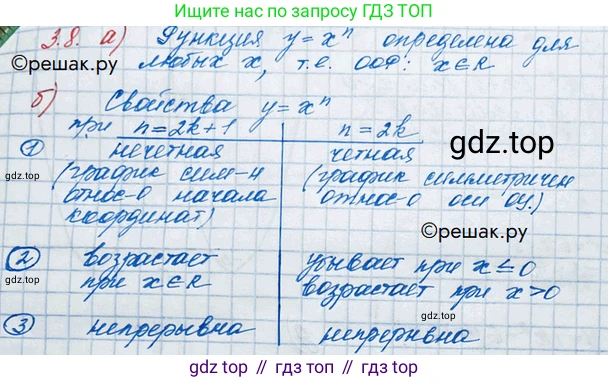 Ищите нас по запросу ГДЗ ТОП
3.8. а) Функция y=xⁿ определена для
©решак.ру любых x, т.е. ООФ: x∈R
б) Свойства y=xⁿ
при n=2k+1 n=2k
① нечетная четная
gdz.top
(график сим-ч (график симметричен
gdz.top
относ-о начала относ-о оси oy.)
координат)
©решак.ру
② возрастает убывает при x≤0
при x∈R возрастает при x>0
③ непрерывна непрерывна
gdz.top // гдз топ // gdz.top // гдз топ // gdz.top